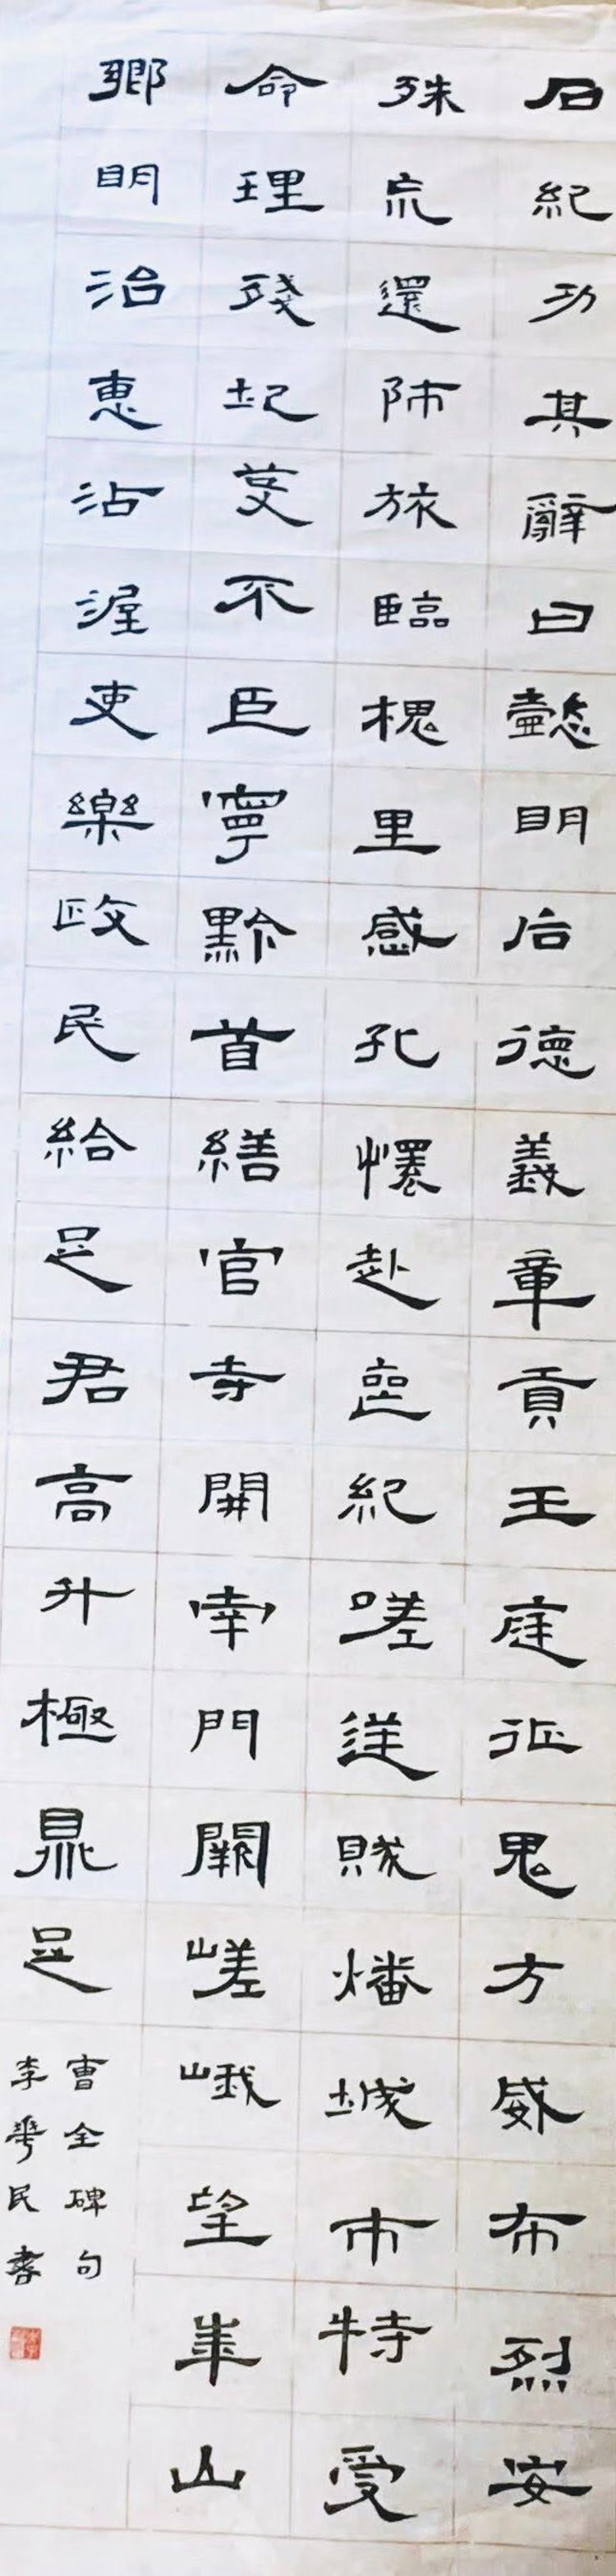 石紀功其辭曰懿明后德義章貢王庭征鬼方威布烈安
殊荒還師旅臨槐里感孔懷赴喪紀嗟逆賊燔城市特受
命理殘圮芟不臣寧黔首繕官寺開南門闕嵯峨望華山
鄉明治惠沾渥吏樂政民給足君高升極鼎足
曹全碑句
李華民書